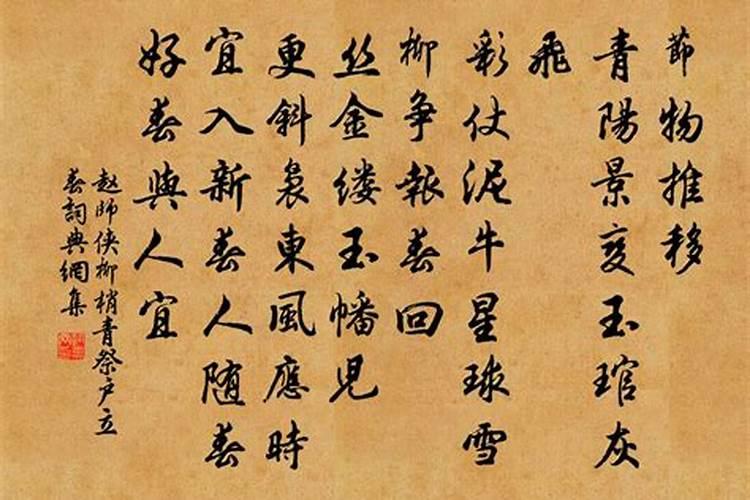 節物推移
青陽景変玉琯灰
飛
彩仗泥牛星球雪
柳争報春回
丝金缕玉幡児
更斜裊東風應時
宜入新春人随春
好春與人宜
赵師侠柳梢青祭户立
春詞典網集